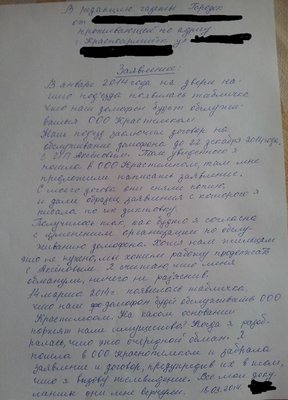 В редакцию газеты Городок
от
проживающей по адресу
г. Красноармейск ул
Заявление:
В январе 2014 года на двери на-
шего подъезда появилась табличка
что наш домофон будет обслужи-
ваться ООО Крастелеком
Наш подъезд заключил договор на
обслуживание домофона до 22 декабря 2014 года,
с Аксеновым. Там увиденного я
пошла в ООО Крастелеком, там мне
предложили написать заявление.
С моего договора они сняли копию,
и дали образец заявления с которого я
писала по их диктовку.
Получилось так, как будто я согласна
с изменением организации по обслу-
живанию домофона. Хотя нам жильцам
это не нужно, мы хотим работу продолжать
с Аксеновым. Я считаю, что меня
обманули, ничего не разъяснив.
14 марта 2014г. появилась табличка,
что наш домофон будет обслуживать ООО
Крастелеком. На каком основании
портят наше имущество? Когда я разоб-
ралась, что это очередной обман. Я
пошла в ООО Крастелеком и забрала
заявление и договор, предупредив их в том,
что я вызову телевидение. Все мои доку-
менты они мне вернули.
18.03.2014г.